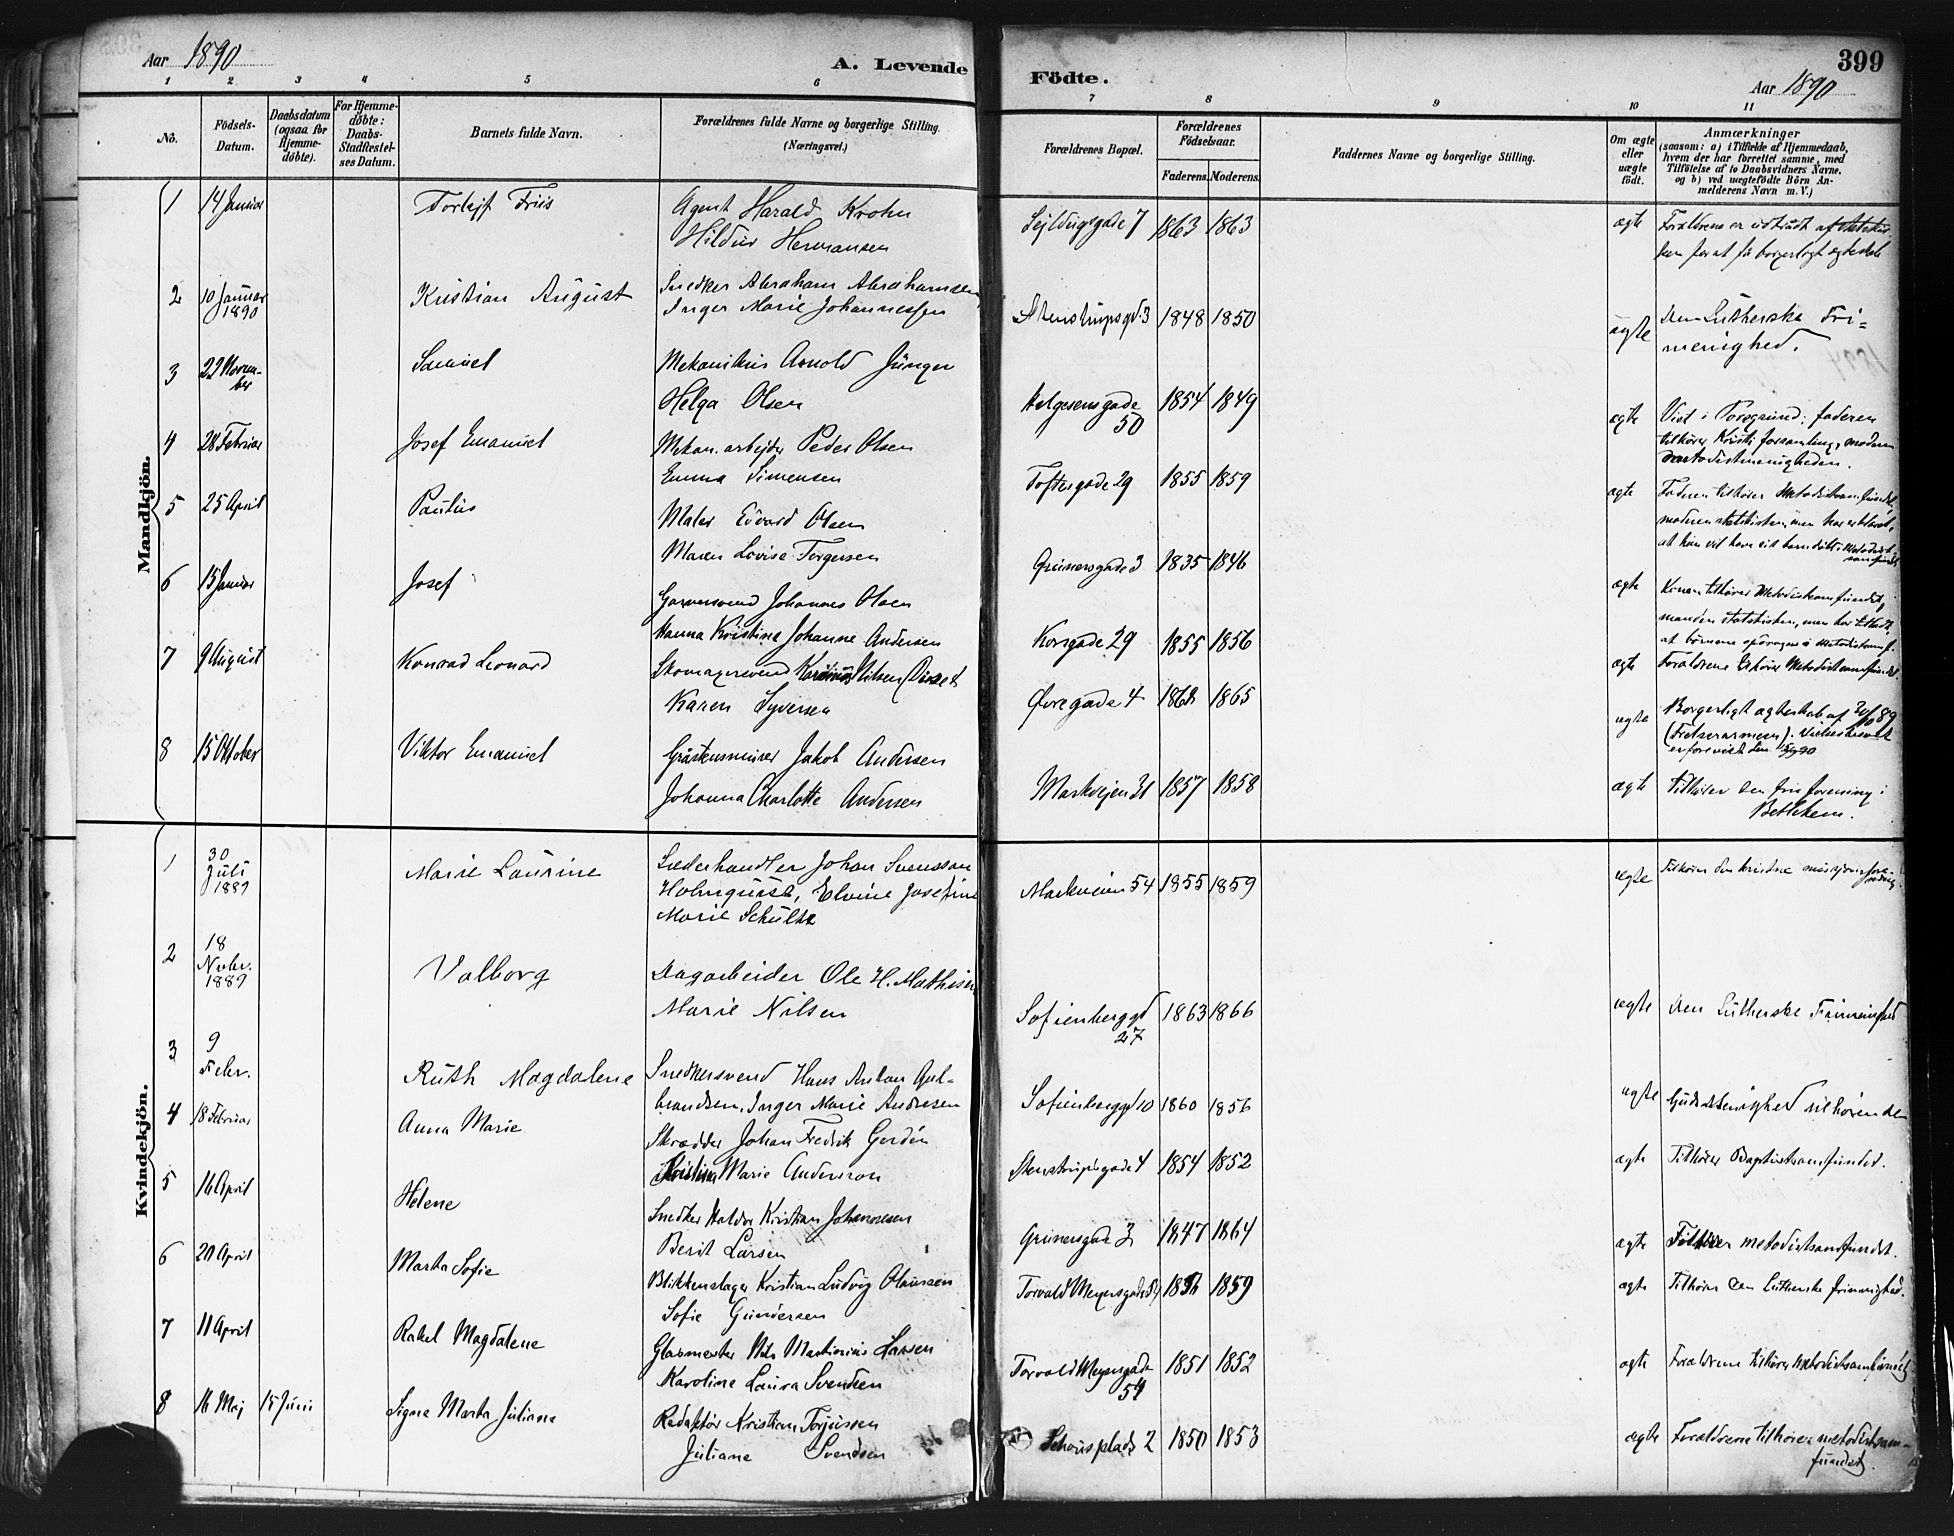 Aar 1890
A. Levende
Födte.
399
Aar 1890
1 2 3 4 5 6 7 8 9 10 11
No.
Födsels-Datum.
Daabsdatum (ogsaa for Hjemme-døbte).
For Hjemme-døbte: Daabs-Stadfæstel-ses Datum.
Barnets fulde Navn.
Forældrenes fulde Navne og borgerlige Stilling. (Næringsvei.)
Forældrenes Bopæl.
Forældrenes Födselsaar.
Faderens. Moderens.
Faddernes Navne og borgerlige Stilling.
Om ægte eller uægte födt.
Anmærkninger
(saasom: a) i Tilfælde af Hjemmedaab, hvem der har forrettet samme, med Tilföielse af to Daabsvidners Navne, og b) ved uægtefödte Börn An-melderens Navn m. V.)
Mandkjön.
1 14 Januar Torlejf Friis Agent Harald Krohn
Hildur Hermansen
Sejldugsgade 7 1863 1863 ægte
Forældrene er udtrådt af
for at få borgerligt
2 10 Januar 1890 Kristian August Snedker Abraham Abrahamsen
Inger Marie Johannessen
Stenstrupsgd. 3 1848 1850 ægte
Den Lutherske Fri-
menighed.
3 22 Novem-ber Samuel Mekanikus Arnold Jünger
Helga Olsen
Helgesensgade 50 1854 1849 ægte
Viet i Porsgrund; faderen
tilhører Kristi forsamling, moderen
metodistmenigheden.
4 28 Februar Josef Emanuel Mekan. arbejder Peder Olsen
Emma Simensen
Toftesgade 29 1855 1859 ægte
Faderen tilhører Metodistsamfundet,
moderen statskirken, men har erklæret,
at hun vil have sit barn døbt i Metodist-
samfundet
5 25 April Paulus Maler Edvard Olsen
Maren Lovise Torgersen
Grünersgade 3 1835 1846 ægte
Konen tilhører Metodistsamfundet,
manden statskirken, men har tilladt,
at børnene opdrages i metodistsamf.
6 15 Januar Josef Garversvend Johannes Olsen
Hanna Kristine Johanne Andersen
Korsgade 29 1855 1856 ægte
Forældrene tilhører Metodistsamfundet
7 9 August Konrad Leonard Skomagersvend Nilsen
Karen Syversen
Øvregade 4 1865 ægte
Borgerligt ægteskab af 89
(Frelserarmeen).
8 15 Oktober Viktor Emanuel Gråstensminer Jakob Andersen
Johanna Charlotte Andersen
Markvejen 31 1857 1858 ægte
Tilhører den fri forening i
Betlehem.
Kvindekjön.
1 30 Juli 1889 Marie Laurine Læderhandler Johan Svensson
Holmquist, Elvine Josefine
Marie Schultz
Markveien 54 1855 1859 ægte
Tilhører den kristne misjonsfore-
2 18 Novbr. 1889 Valborg Dagarbeider Ole H. Mathisen
Marie Nilsen
Sofienberggd 27 1863 1866 ægte
Den Lutherske Frimenighed
3 9 Febr. Ruth Magdalene Snedkersvend Hans Anton Gul-
brandsen, Inger Marie Andresen
Sofienberggd 10 1860 1856 ægte
Guds Menighed tilhørende
4 18 Februar Anna Marie Skrædder Johan Fredrik Gordén
Kristine Marie Andersson
Stenstrupsgade 4 1854 1852 ægte
Tilhører Baptistsamfundet.
5 16 April Helene Snedker Halvor Kristian Johannesen
Berit Larsen
Grünersgade 3 1847 1864 ægte
Tilhører metodistsamfundet.
6 20 April Marta Sofie Blikkenslager Kristian Ludvig Olaussen
Sofie Gundersen
Torvald Meyersgade 1859 ægte
Tilhører den Lutherske frimenighed.
7 11 April Rakel Magdalene Glasmester Nils Martinius Larsen
Karoline Laura Svendsen
Torvald Meyersgade 54 1851 1852 ægte
Forældrene tilhører Metodistsamfundet
8 16 Maj 15 Juni Signe Marta Juliane Redaktør Kristian Torjussen
Juliane Svendsen
Schousplads 2 1850 1853 ægte
Forældrene tilhører metodistsam-
fundet.